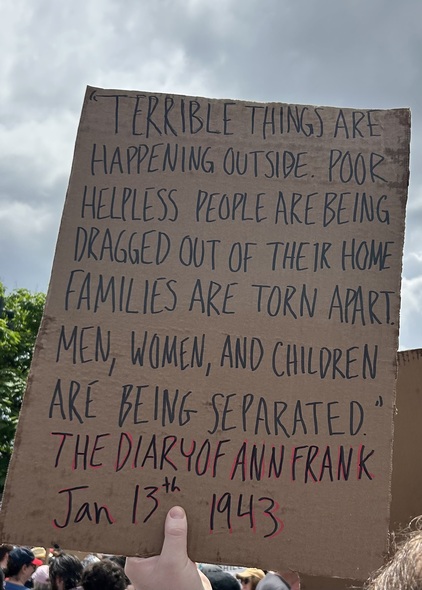 "TERRIBLE THINGS ARE
HAPPENING OUTSIDE. POOR
HELPLESS PEOPLE ARE BEING
DRAGGED OUT OF THEIR HOME
FAMILIES ARE TORN APART.
MEN, WOMEN, AND CHILDREN
ARE BEING SEPARATED."
THE DIARY OF ANN FRANK
Jan 13th 1943